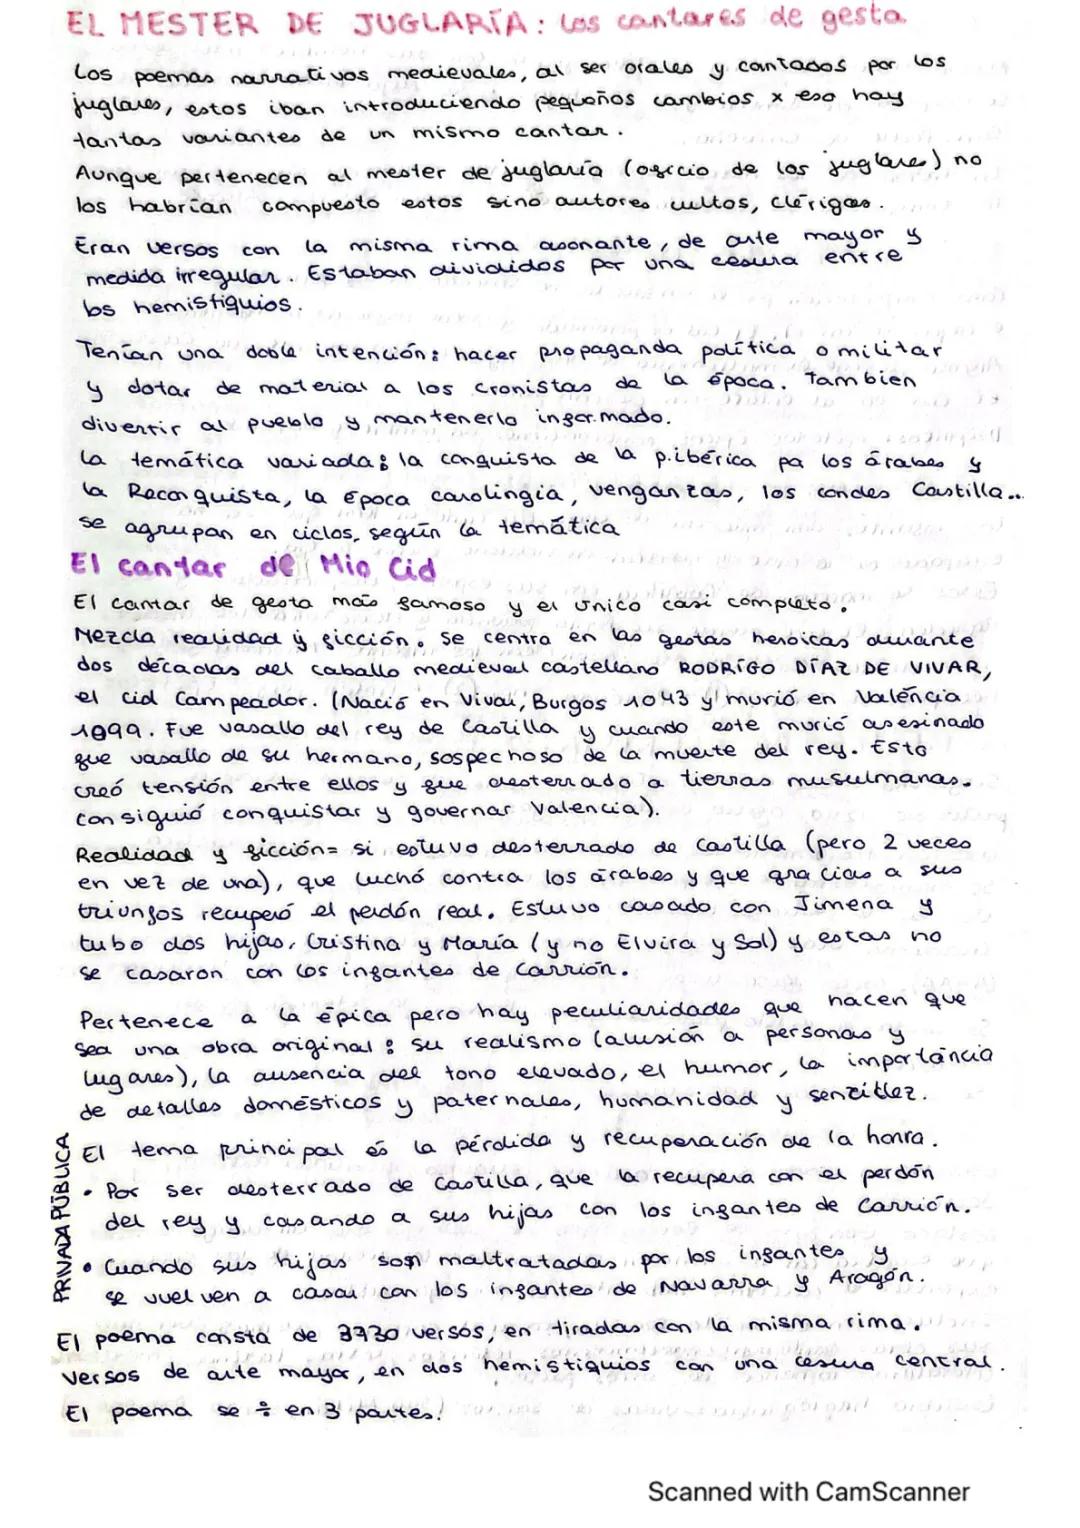 EL MESTER DE JUGLARÍA: los cantares de gesta
Los poemas narrativos medievales, al ser orales y cantados por los
juglares, estos iban introduciendo pequeños cambios x eso hay
tantas variantes de un mismo cantar.
Aunque pertenecen al mester de juglaría (oficio de los juglares) no
los habrían compuesto estos sino autores cultos, clérigos.
Eran versos con la misma rima asonante, de arte mayor y
medida irregular. Estaban divididos por una cesura entre
los hemistiquios.
Tenían una doble intención: hacer propaganda política o militar
y dotar de material a los cronistas de la época. Tambien
divertir al pueblo y mantenerlo informado.
La temática variada: la conquista de la p.ibérica pa los árabes y
la Reconquista, la época carolingia, venganzas, los condes Castilla...
se agrupan en ciclos, según la temática
El cantar de Mio Cid
El cantar de gesta más famoso y el unico casi completo.
Mezcla realidad y ficción. Se centra en las gestas heróicas durante
dos décadas del caballo medieval castellano RODRIGO DÍAZ DE VIVAR,
el Cid Campeador. (Nació en Vivar, Burgos 1043 y murió en Valencia
1099. Fue vasallo del rey de Castilla y cuando este murió asesinado
fue vasallo de su hermano, sospechoso de la muerte del rey. Esto
creó tensión entre ellos y fue desterrado a tierras musulmanas.
consiguió conquistar y governar Valencia).
Realidad y ficción= si estuvo desterrado de Castilla (pero 2 veces
en vez de una), que luchó contra los árabes y que gracias a sus
triunfos recuperó el perdón real. Estuvo casado con Jimena y
tubo dos hijas, Cristina y María (y no Elvira y Sol) y estas no
se casaron con los infantes de Carrión.
Pertenece a la épica pero hay peculiaridades que hacen que
sea una obra original: su realismo (alusión a personas y
lugares), la ausencia del tono elevado, el humor, la importáncia
de detalles domésticos y paternales, humanidad y senzillez.
El tema principal és la pérdida y recuperación de la honra.
PRIVADA PÚBLICA
• Por ser desterrado de Castilla, que la recupera con el perdón
del rey y casando a sus hijas con los infantes de Carrión.
• Cuando sus hijas son maltratadas por los infantes y
se vuelven a casar con los infantes de Navarra y Aragón.
El poema consta de 3730 versos, en tiradas con la misma rima.
Versos de arte mayor, en dos hemistiquios con una cesura central.
El poema se ÷ en 3 partes.
Scanned with CamScanner